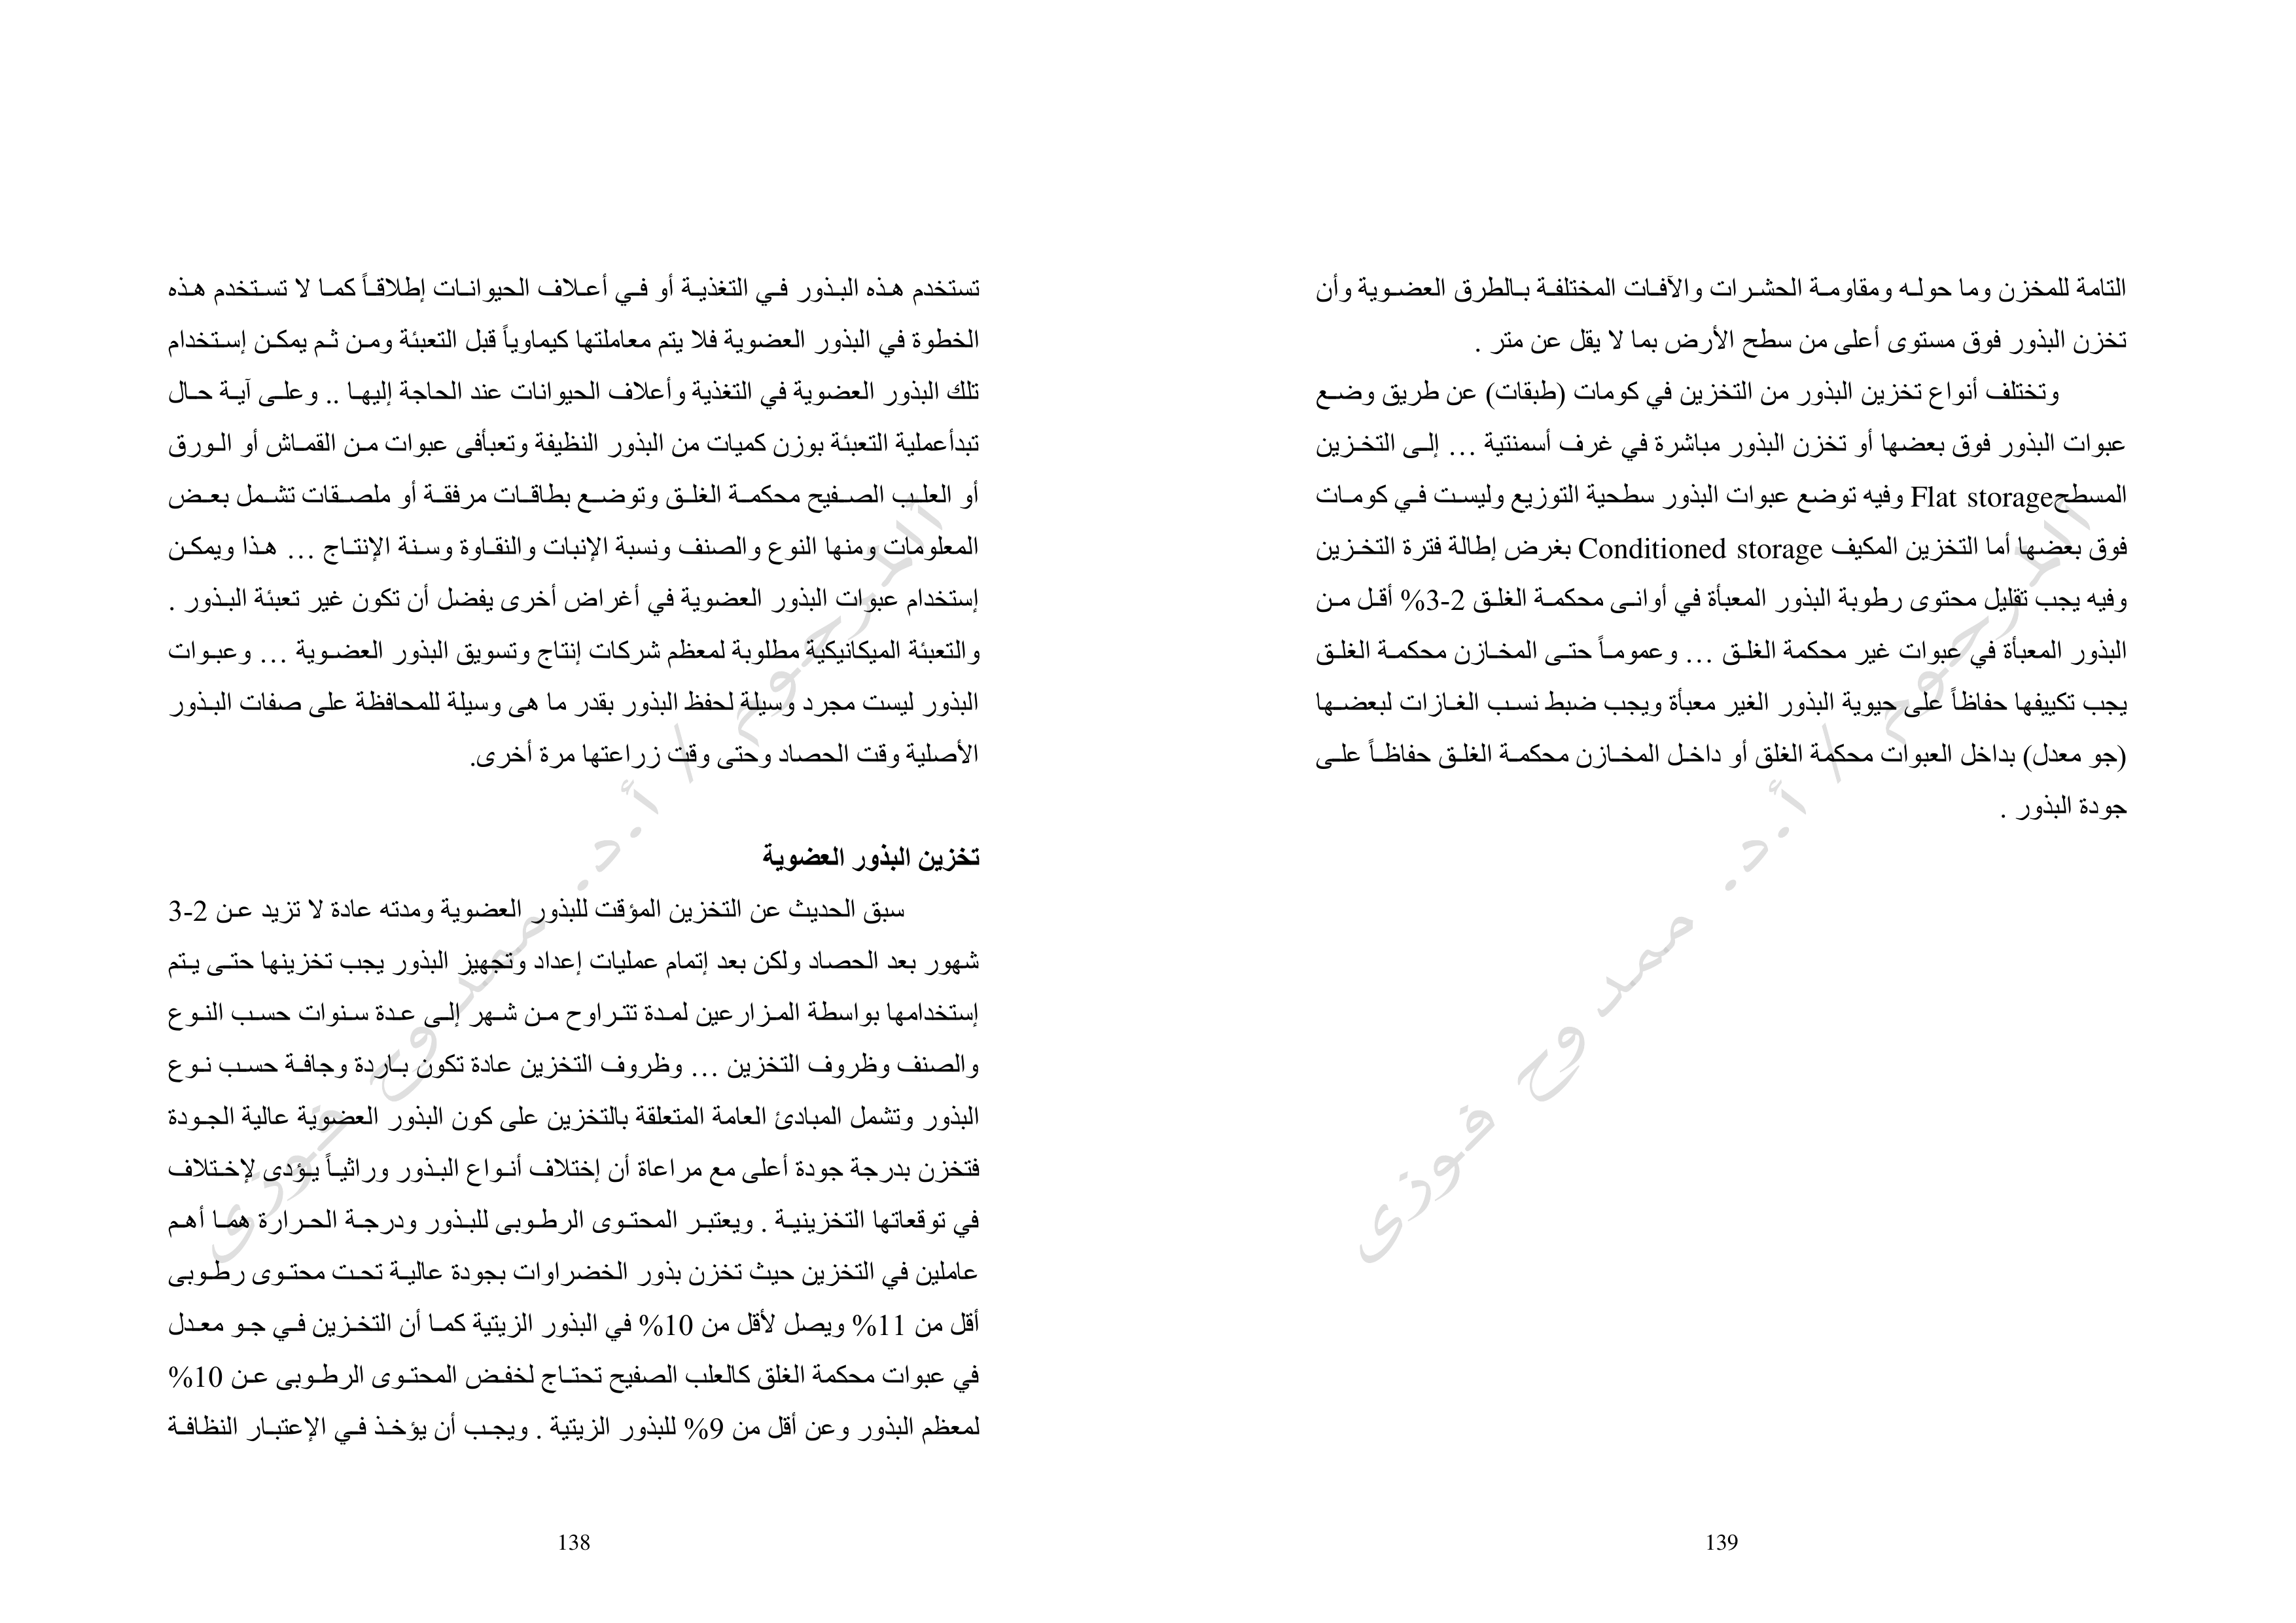 تستخدم هذه البذور في التغذية أو في أعلاف الحيوانات إطلاقاً كما لا تستخدم هذه
الخطوة في البذور العضوية فلا يتم معاملتها كيماوياً قبل التعبئة ومن ثم يمكن إستخدام
تلك البذور العضوية في التغذية وأعلاف الحيوانات عند الحاجة إليها .. وعلى آية حال
تبدأعملية التعبئة بوزن كميات من البذور النظيفة وتعبأفى عبوات من القماش أو الورق
أو العلب الصفيح محكمة الغلق وتوضع بطاقات مرفقة أو ملصقات تشمل بعض
المعلومات ومنها النوع والصنف ونسبة الإنبات والنقاوة وسنة الإنتاج ... هذا ويمكن
إستخدام عبوات البذور العضوية في أغراض أخرى يفضل أن تكون غير تعبئة البذور .
والتعبئة الميكانيكية مطلوبة لمعظم شركات إنتاج وتسويق البذور العضوية ... وعبوات
البذور ليست مجرد وسيلة لحفظ البذور بقدر ما هى وسيلة للمحافظة على صفات البذور
الأصلية وقت الحصاد وحتى وقت زراعتها مرة أخرى.
تخزين البذور العضوية
سبق الحديث عن التخزين المؤقت للبذور العضوية ومدته عادة لا تزيد عن 2-3
شهور بعد الحصاد ولكن بعد إتمام عمليات إعداد وتجهيز البذور يجب تخزينها حتى يتم
إستخدامها بواسطة المزارعين لمدة تتراوح من شهر إلى عدة سنوات حسب النوع
والصنف وظروف التخزين ... وظروف التخزين عادة تكون باردة وجافة حسب نوع
البذور وتشمل المبادئ العامة المتعلقة بالتخزين على كون البذور العضوية عالية الجودة
فتخزن بدرجة جودة أعلى مع مراعاة أن إختلاف أنواع البذور وراثياً يؤدى لإختلاف
في توقعاتها التخزينية . ويعتبر المحتوى الرطوبى للبذور ودرجة الحرارة هما أهم
عاملين في التخزين حيث تخزن بذور الخضراوات بجودة عالية تحت محتوى رطوبى
أقل من 11% ويصل لأقل من 10% في البذور الزيتية كما أن التخزين في جو معدل
في عبوات محكمة الغلق كالعلب الصفيح تحتاج لخفض المحتوى الرطوبى عن 10%
لمعظم البذور وعن أقل من 9% للبذور الزيتية . ويجب أن يؤخذ في الإعتبار النظافة
138
التامة للمخزن وما حوله ومقاومة الحشرات والآفات المختلفة بالطرق العضوية وأن
تخزن البذور فوق مستوى أعلى من سطح الأرض بما لا يقل عن متر .
وتختلف أنواع تخزين البذور من التخزين في كومات (طبقات) عن طريق وضع
عبوات البذور فوق بعضها أو تخزن البذور مباشرة في غرف أسمنتية ... إلى التخزين
المسطحFlat storage وفيه توضع عبوات البذور سطحية التوزيع وليست في كومات
فوق بعضها أما التخزين المكيف Conditioned storage بغرض إطالة فترة التخزين
وفيه يجب تقليل محتوى رطوبة البذور المعبأة في أوانى محكمة الغلق 2-3% أقل من
البذور المعبأة في عبوات غير محكمة الغلق ... وعموماً حتى المخازن محكمة الغلق
يجب تكييفها حفاظاً على حيوية البذور الغير معبأة ويجب ضبط نسب الغازات لبعضها
(جو معدل) بداخل العبوات محكمة الغلق أو داخل المخازن محكمة الغلق حفاظاً على
جودة البذور .
139
المرحوم / أ.د. ممدوح فوزى
المرحوم / أ.د. ممدوح فوزى